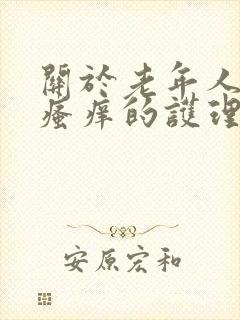 關於老年人
瘙痒的護理
安原宏和